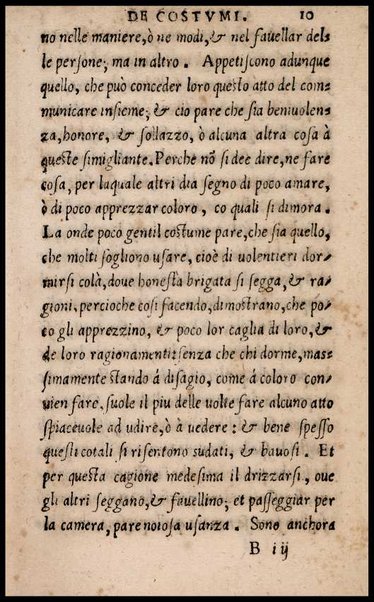 DE COSTVMI. 10
no nelle maniere, ò ne modi, & nel fauellar del-
le persone; ma in altro. Appetiscono adunque
quello, che può conceder loro questo atto del com-
municare insieme; & cio pare che sia beniuolen-
za, honore, & sollazzo, ò alcuna altra cosa à
queste simigliante. Perche nõ si dee dire, ne fare
cosa, per laquale altri dia segno di poco amare,
ò di poco apprezzar coloro, co quali si dimora.
La onde poco gentil costume pare, che sia quello,
che molti sogliono usare, cioè di uolentieri dor-
mirsi colà, doue honesta brigata si segga, & ra-
gioni, percioche cosi facendo, dimostrano, che po-
co gli apprezzino, & poco lor caglia di loro, &
de loro ragionamenti: senza che chi dorme, mas-
simamente stando à disagio, come à coloro con-
uien fare, suole il piu delle uolte fare alcuno atto
spiaceuole ad udire, ò à uedere: & bene spesso
questi cotali si risentono sudati, & bauosi. Et
per questa cagione medesima il drizzarsi, oue
gli altri seggano, & fauellino; et passeggiar per
la camera, pare noiosa usanza. Sono anchora
B ij